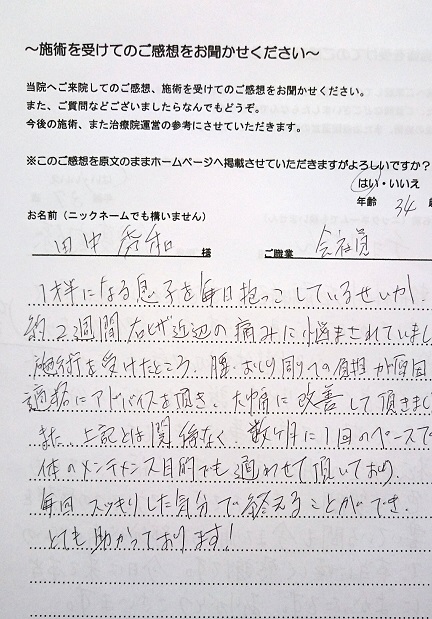 ～施術を受けてのご感想をお聞かせください～
当院へご来院してのご感想、施術を受けてのご感想をお聞かせください。
また、ご質問などございましたらなんでもどうぞ。
今後の施術、また治療院運営の参考にさせていただきます。
※このご感想を原文のままホームページへ掲載させていただきますがよろしいですか？
はい・いいえ
お名前（ニックネームでも構いません）
年齢 34 歳
田中 秀和 様 ご職業 会社員
1才半になる息子を毎日抱っこしているせいか、
約2週間右ヒザ近辺の痛みに悩まされていまし
施術を受けたところ、腰・おしり周りへの負担が原因
適格にアドバイスを頂き、大幅に改善して頂きまし
また、上記とは関係なく、数ヶ月に1回のペースで
体のメンテンス目的でも通わせて頂いており、
毎回スッキリした気分で終えることができ、
とても助かっております！